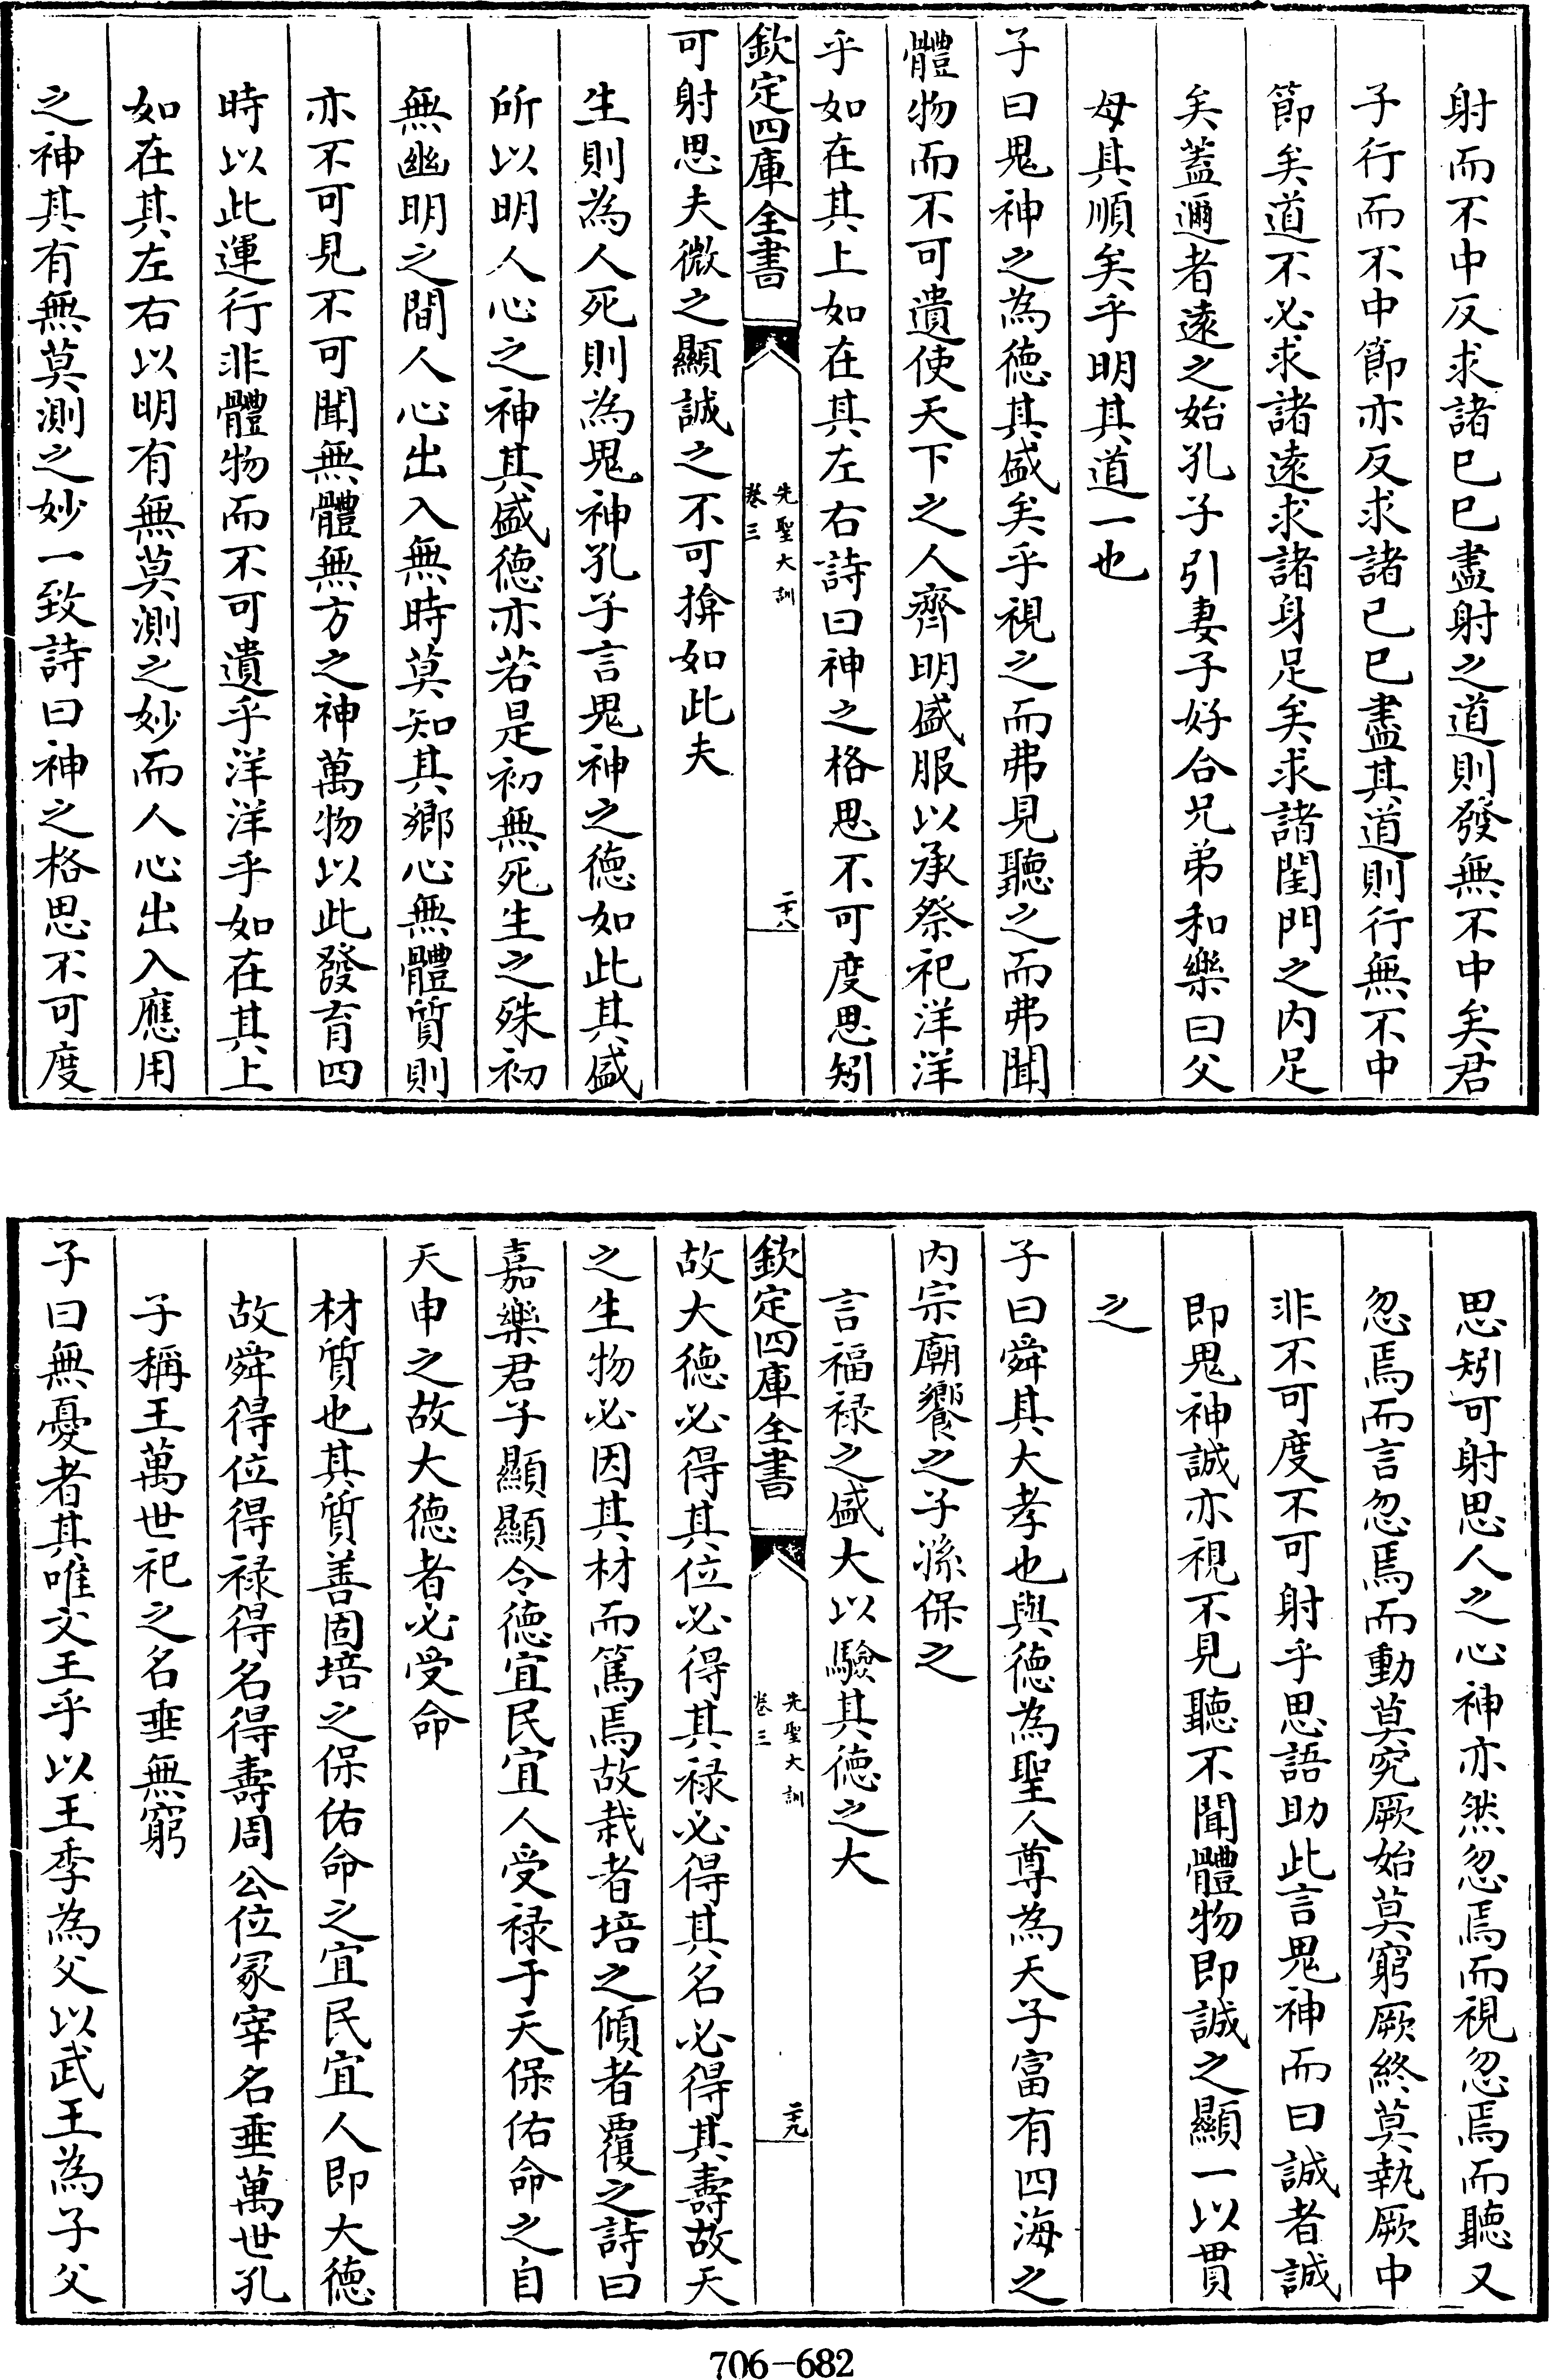 射而不中反求諸已已盡射之道則發無不中矣君
子行而不中節亦反求諸已已盡其道則行無不中
節矣道不必求諸遠求諸身足矣求諸閨門之内足
矣蓋邇者遠之始孔子引妻子好合兄弟和樂曰父
母其順矣乎明其道一也
子曰鬼神之為德其盛矣乎視之而弗見聽之而弗聞
體物而不可遺使天下之人齊明盛服以承祭祀洋洋
乎如在其上如在其左右詩曰神之格思不可度思矧
欽定四庫全書
先聖大訓
卷三
二十八
可射思夫微之顯誠之不可揜如此夫
生則為人死則為鬼神孔子言鬼神之德如此其盛
所以明人心之神其盛德亦若是初無死生之殊初
無幽明之間人心出入無時莫知其鄉心無體質則
亦不可見不可聞無體無方之神萬物以此發育四
時以此運行非體物而不可遺乎洋洋乎如在其上
如在其左右以明有無莫測之妙而人心出入應用
之神其有無莫測之妙一致詩曰神之格思不可度
思矧可射思人之心神亦然忽焉而視忽焉而聽又
忽焉而言忽焉而動莫究厥始莫窮厥終莫執厥中
非不可度不可射乎思語助此言鬼神而曰誠者誠
即鬼神誠亦視不見聽不聞體物即誠之顯一以貫
之
子曰舜其大孝也與德為聖人尊為天子富有四海之
内宗廟饗之子孫保之
言福禄之盛大以驗其德之大
欽定四庫全書
先聖大訓
卷三
二十九
故大德必得其位必得其禄必得其名必得其壽故天
之生物必因其材而篤焉故栽者培之傾者覆之詩曰
嘉樂君子顯顯令德宜民宜人受禄于天保佑命之自
天申之故大德者必受命
材質也其質善固培之保佑命之宜民宜人即大德
故舜得位得禄得名得壽周公位冢宰名垂萬世孔
子稱王萬世祀之名垂無窮
子曰無憂者其唯文王乎以王季為父以武王為子父
706-682